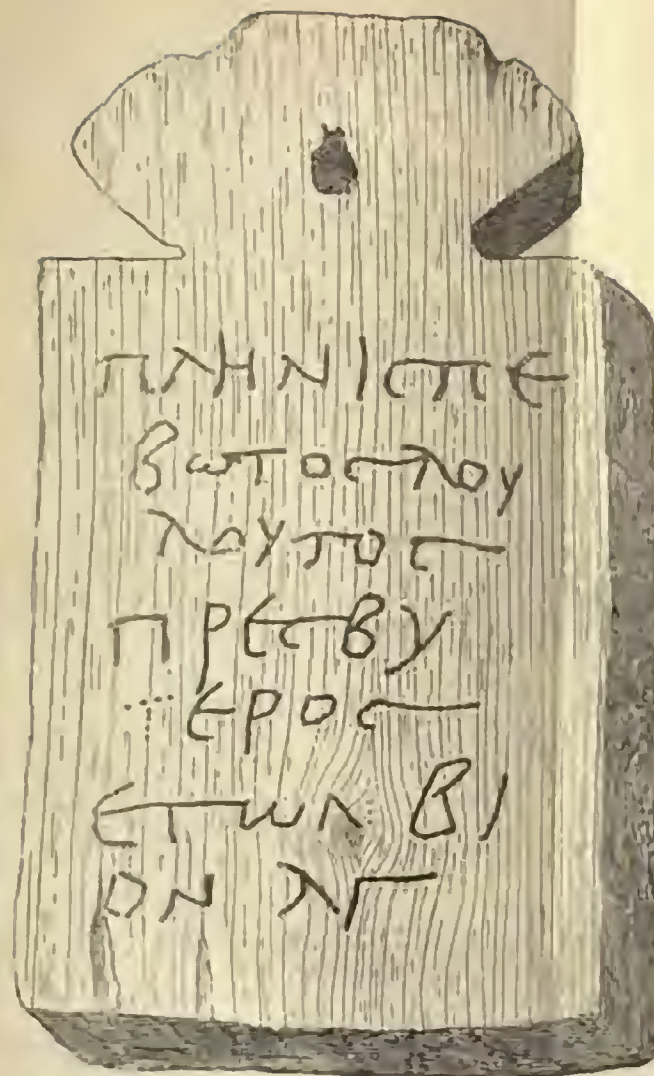 ΠΛΗΝΙϹΠΕ
ΒωΤΟϹΛΟΥ
ΛΟΥΤΟϹ
ΠΡΕϹΒΥ
ΤΕΡΟϹ
ΕΤωΛ ΒΙ
ΟΝ ΛΓ